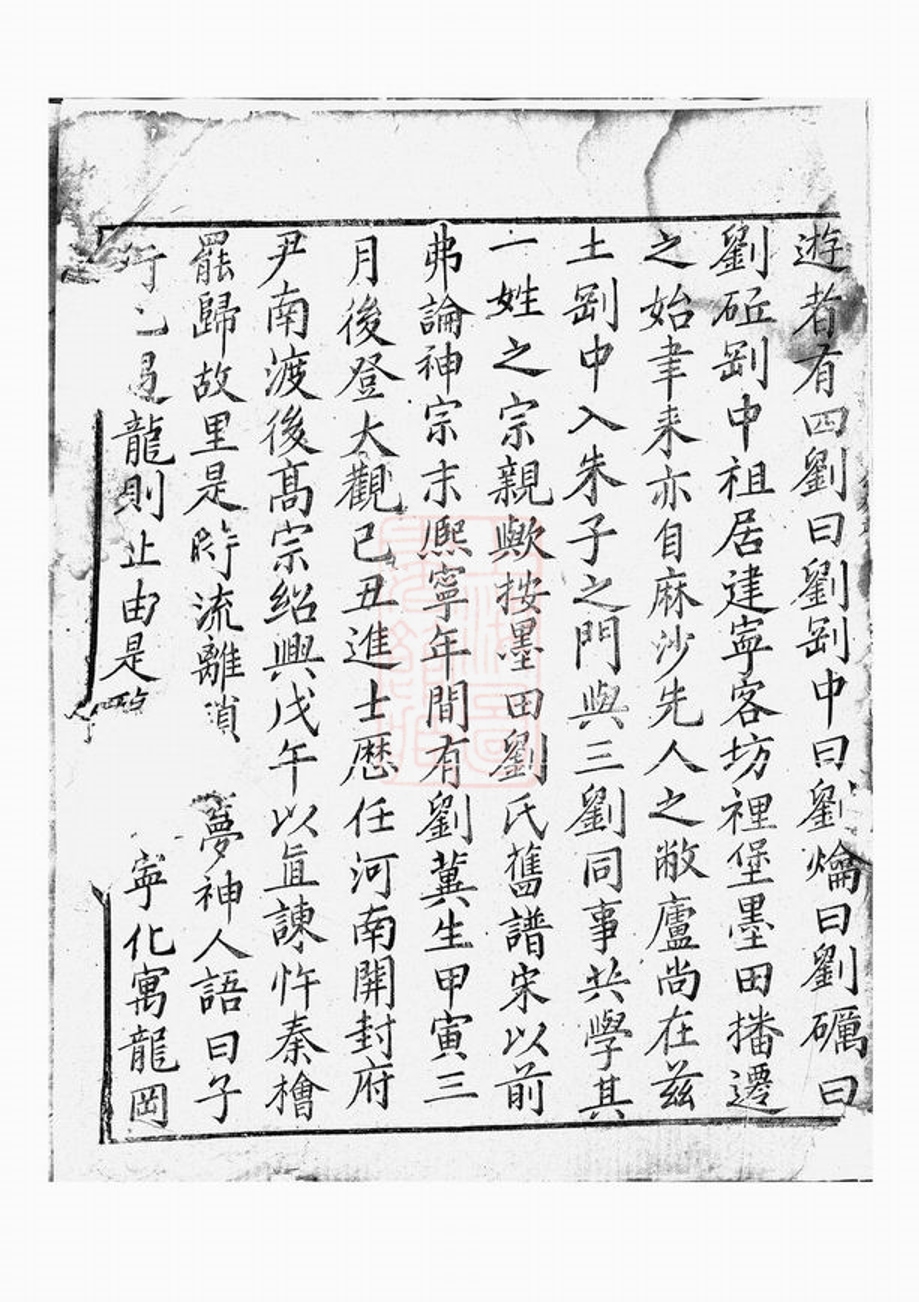 遊者有四劉曰劉剛中曰劉爚曰劉礪曰
劉砥剛中祖居建寧客坊裡堡墨田播遷
之始聿来亦自麻沙先人之敝廬尚在茲
土剛中入朱子之門與三劉同事共學其
一姓之宗親歟按墨田劉氏舊譜宋以前
弗論神宗末熈寧年間有劉蓂生甲寅三
月後登大觀己丑進士歷任河南開封府
尹南渡後髙宗紹興戊午以直諫忤秦檜
罷歸故里是時流離瑣夢神人語曰子
行龍則止由是寧化寓龍岡